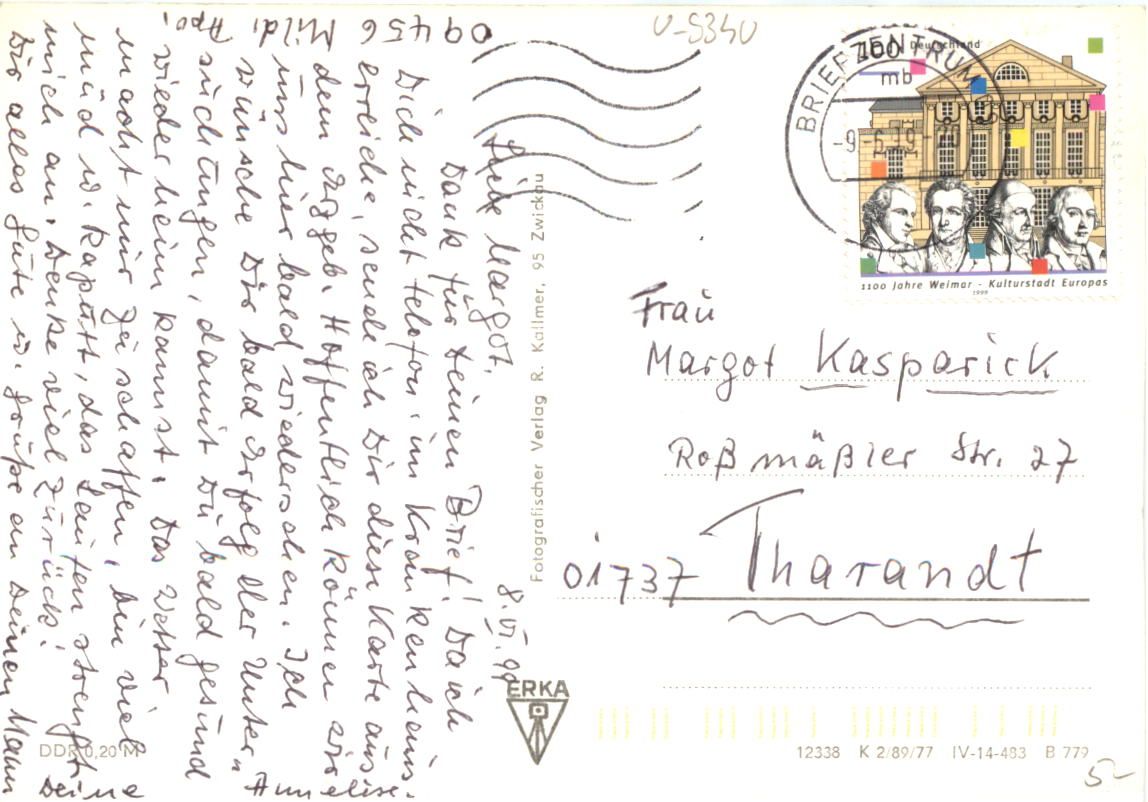 8. VI. 99
Liebe Margot.
Dank für Deinen Brief! Da ich
Dich nicht telefon. im Krankenhaus
erreiche, sende ich Dir diese Karte aus
dem Erzgeb. Hoffentlich können wir
uns hier bald wiedersehen. Ich
wünsche Dir bald Erfolg der Unter„
suchungen, damit Du bald gesund
wieder heim kannst. Das Wetter
macht mir zu schaffen, bin viel
müd u. kaputt, das Laufen strengt
mich an. Denke viel zurück!
Dir alles Gute u. Grüße an Deinen Mann
Deine Annelise.
09456
Mild.
Apo.
DDR 0,20 M
Fotografischer Verlag R. Kallmer, 95 Zwickau
ERKA
U-5340
100 Deutschland
BRIEFZENTRUM
mb
-9-6.99-
1100 Jahre Weimar - Kulturstadt Europas
1999
Frau
Margot Kasparick
Roßmäßler Str. 27
01737 Tharandt
12338 K 2/89/77 IV-14-483 B 779
5-